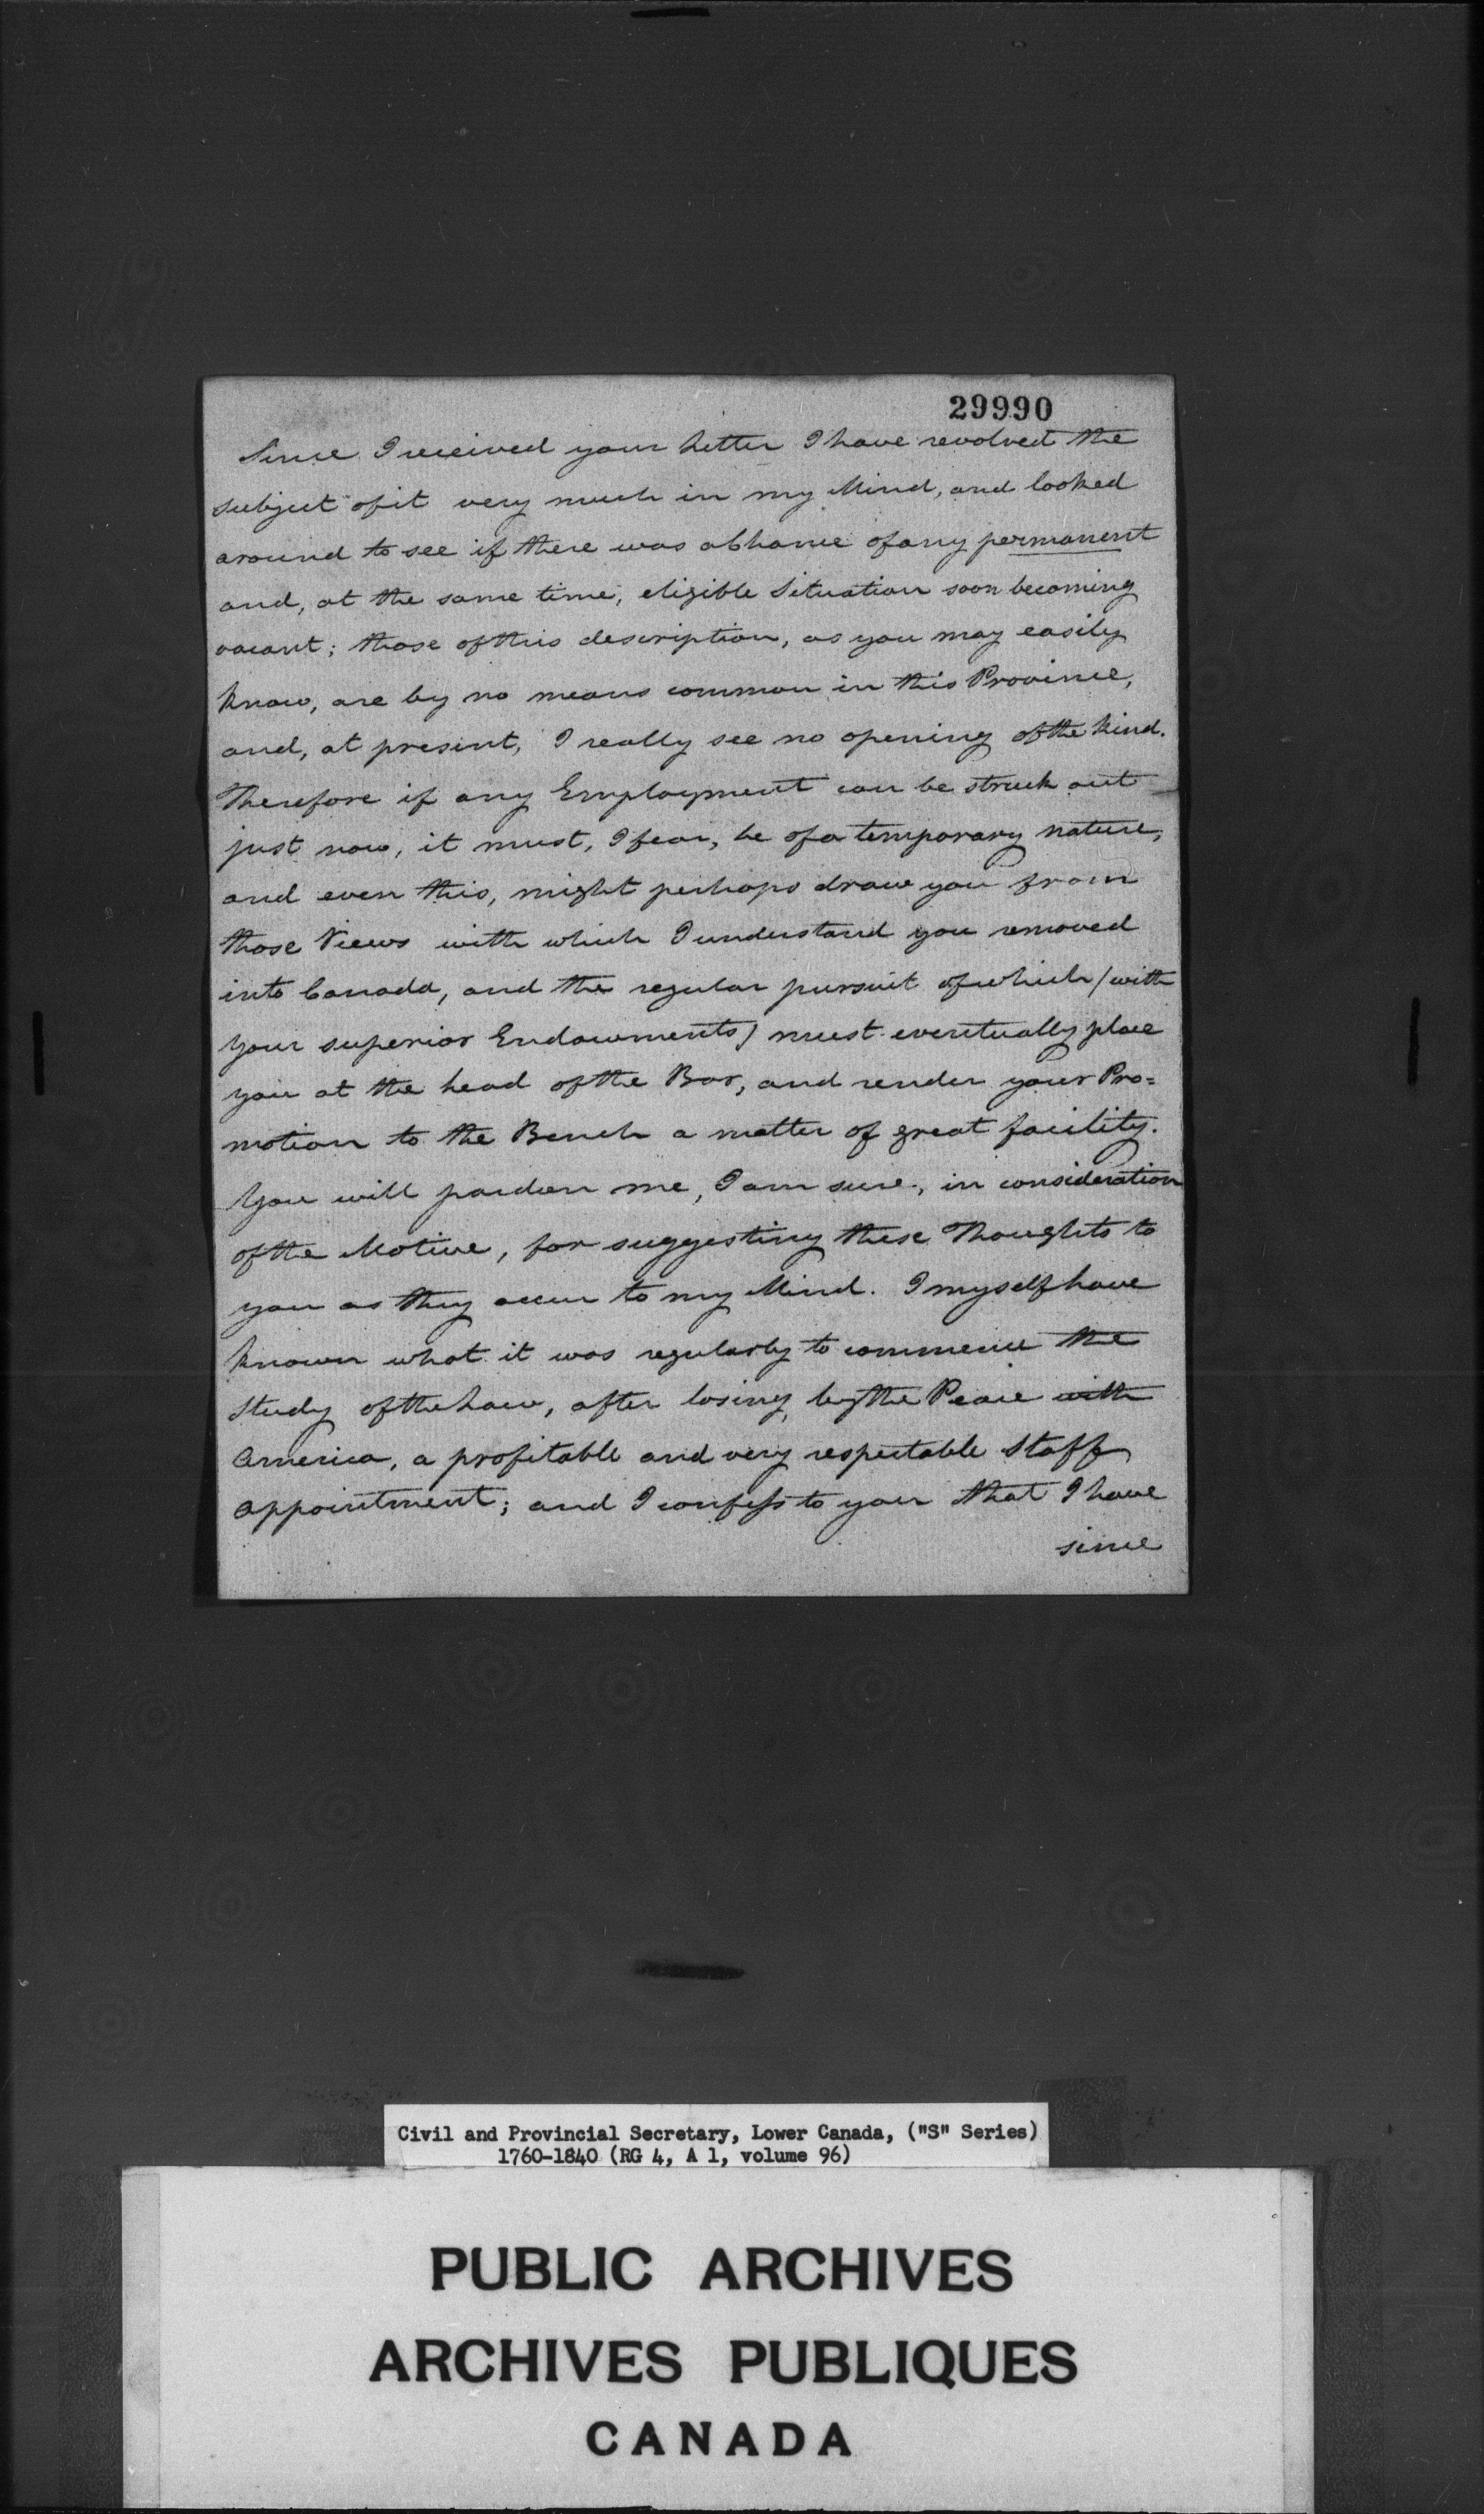 29990
Since I received your Letter I have revolved the
subject of it very much in my Mind, and looked
around to see if there was a Chance of any permanent
and, at the same time, eligible Situation soon becoming
vacant; those of this description, as you may easily
know, are by no means common in this Province,
and, at present, I really see no opening of the kind.
Therefore if any Employment can be struck out
just now, it must, I fear, be of a temporary nature,
and even this, might perhaps draw you from
those Views with which I understand you removed
into Canada, and the regular pursuit of which (with
your superior Endowments) must eventually place
you at the head of the Bar, and render your Pro=
motion to the Bench a matter of great facility.
You will pardon me, I am sure, in consideration
of the Motive, for suggesting these Thoughts to
you as they occur to my Mind. I myself have
known what it was regularly to commence the
Study of the Law, after losing, by the Peace with
America, a profitable and very respectable Staff
appointment; and I confess to you that I have
since
Civil and Provincial Secretary, Lower Canada, ("S" Series)
1760-1840 (RG 4, A 1, volume 96)
PUBLIC ARCHIVES
ARCHIVES PUBLIQUES
CANADA